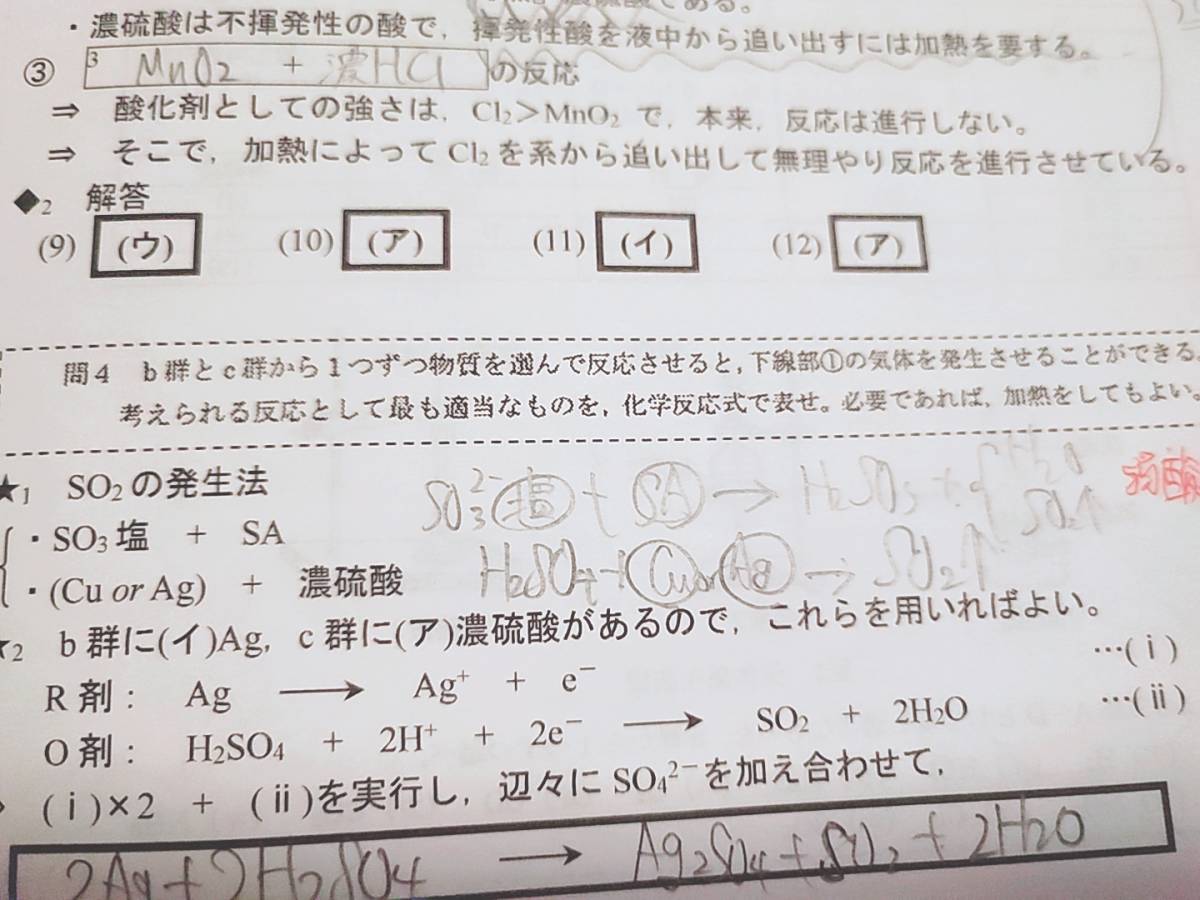 である。
・濃硫酸は不揮発性の酸で，揮発性酸を液中から追い出すには加熱を要する。
③ 3 MnO2 + 濃HCl の反応
⇒ 酸化剤としての強さは，Cl2＞MnO2 で，本来，反応は進行しない。
⇒ そこで，加熱によって Cl2 を系から追い出して無理やり反応を進行させている。
◆2 解答
(9) (ウ) (10) (ア) (11) (イ) (12) (ア)
問4 b群とc群から1つずつ物質を選んで反応させると，下線部①の気体を発生させることができる。
考えられる反応として最も適当なものを，化学反応式で表せ。必要であれば，加熱をしてもよい。
★1 SO2の発生法
SO3^2- 塩 + SA → H2SO3 + SO2↑
・SO3塩 + SA
H2SO4 + Cu or Ag → SO2↑
・(Cu or Ag) + 濃硫酸
★2 b群に(イ)Ag，c群に(ア)濃硫酸があるので，これらを用いればよい。
R剤： Ag ⟶ Ag+ + e− …(ⅰ)
O剤： H2SO4 + 2H+ + 2e− ⟶ SO2 + 2H2O …(ⅱ)
(ⅰ)×2 + (ⅱ)を実行し，辺々に SO4^2− を加え合わせて，
2Ag + 2H2SO4 ⟶ Ag2SO4 + SO2 + 2H2O